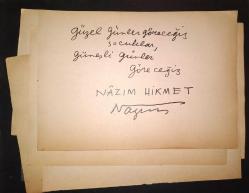 güzel günler göreceğiz
çocuklar,
güneşli günler
göreceğiz
NÂZIM HİKMET
Nazım